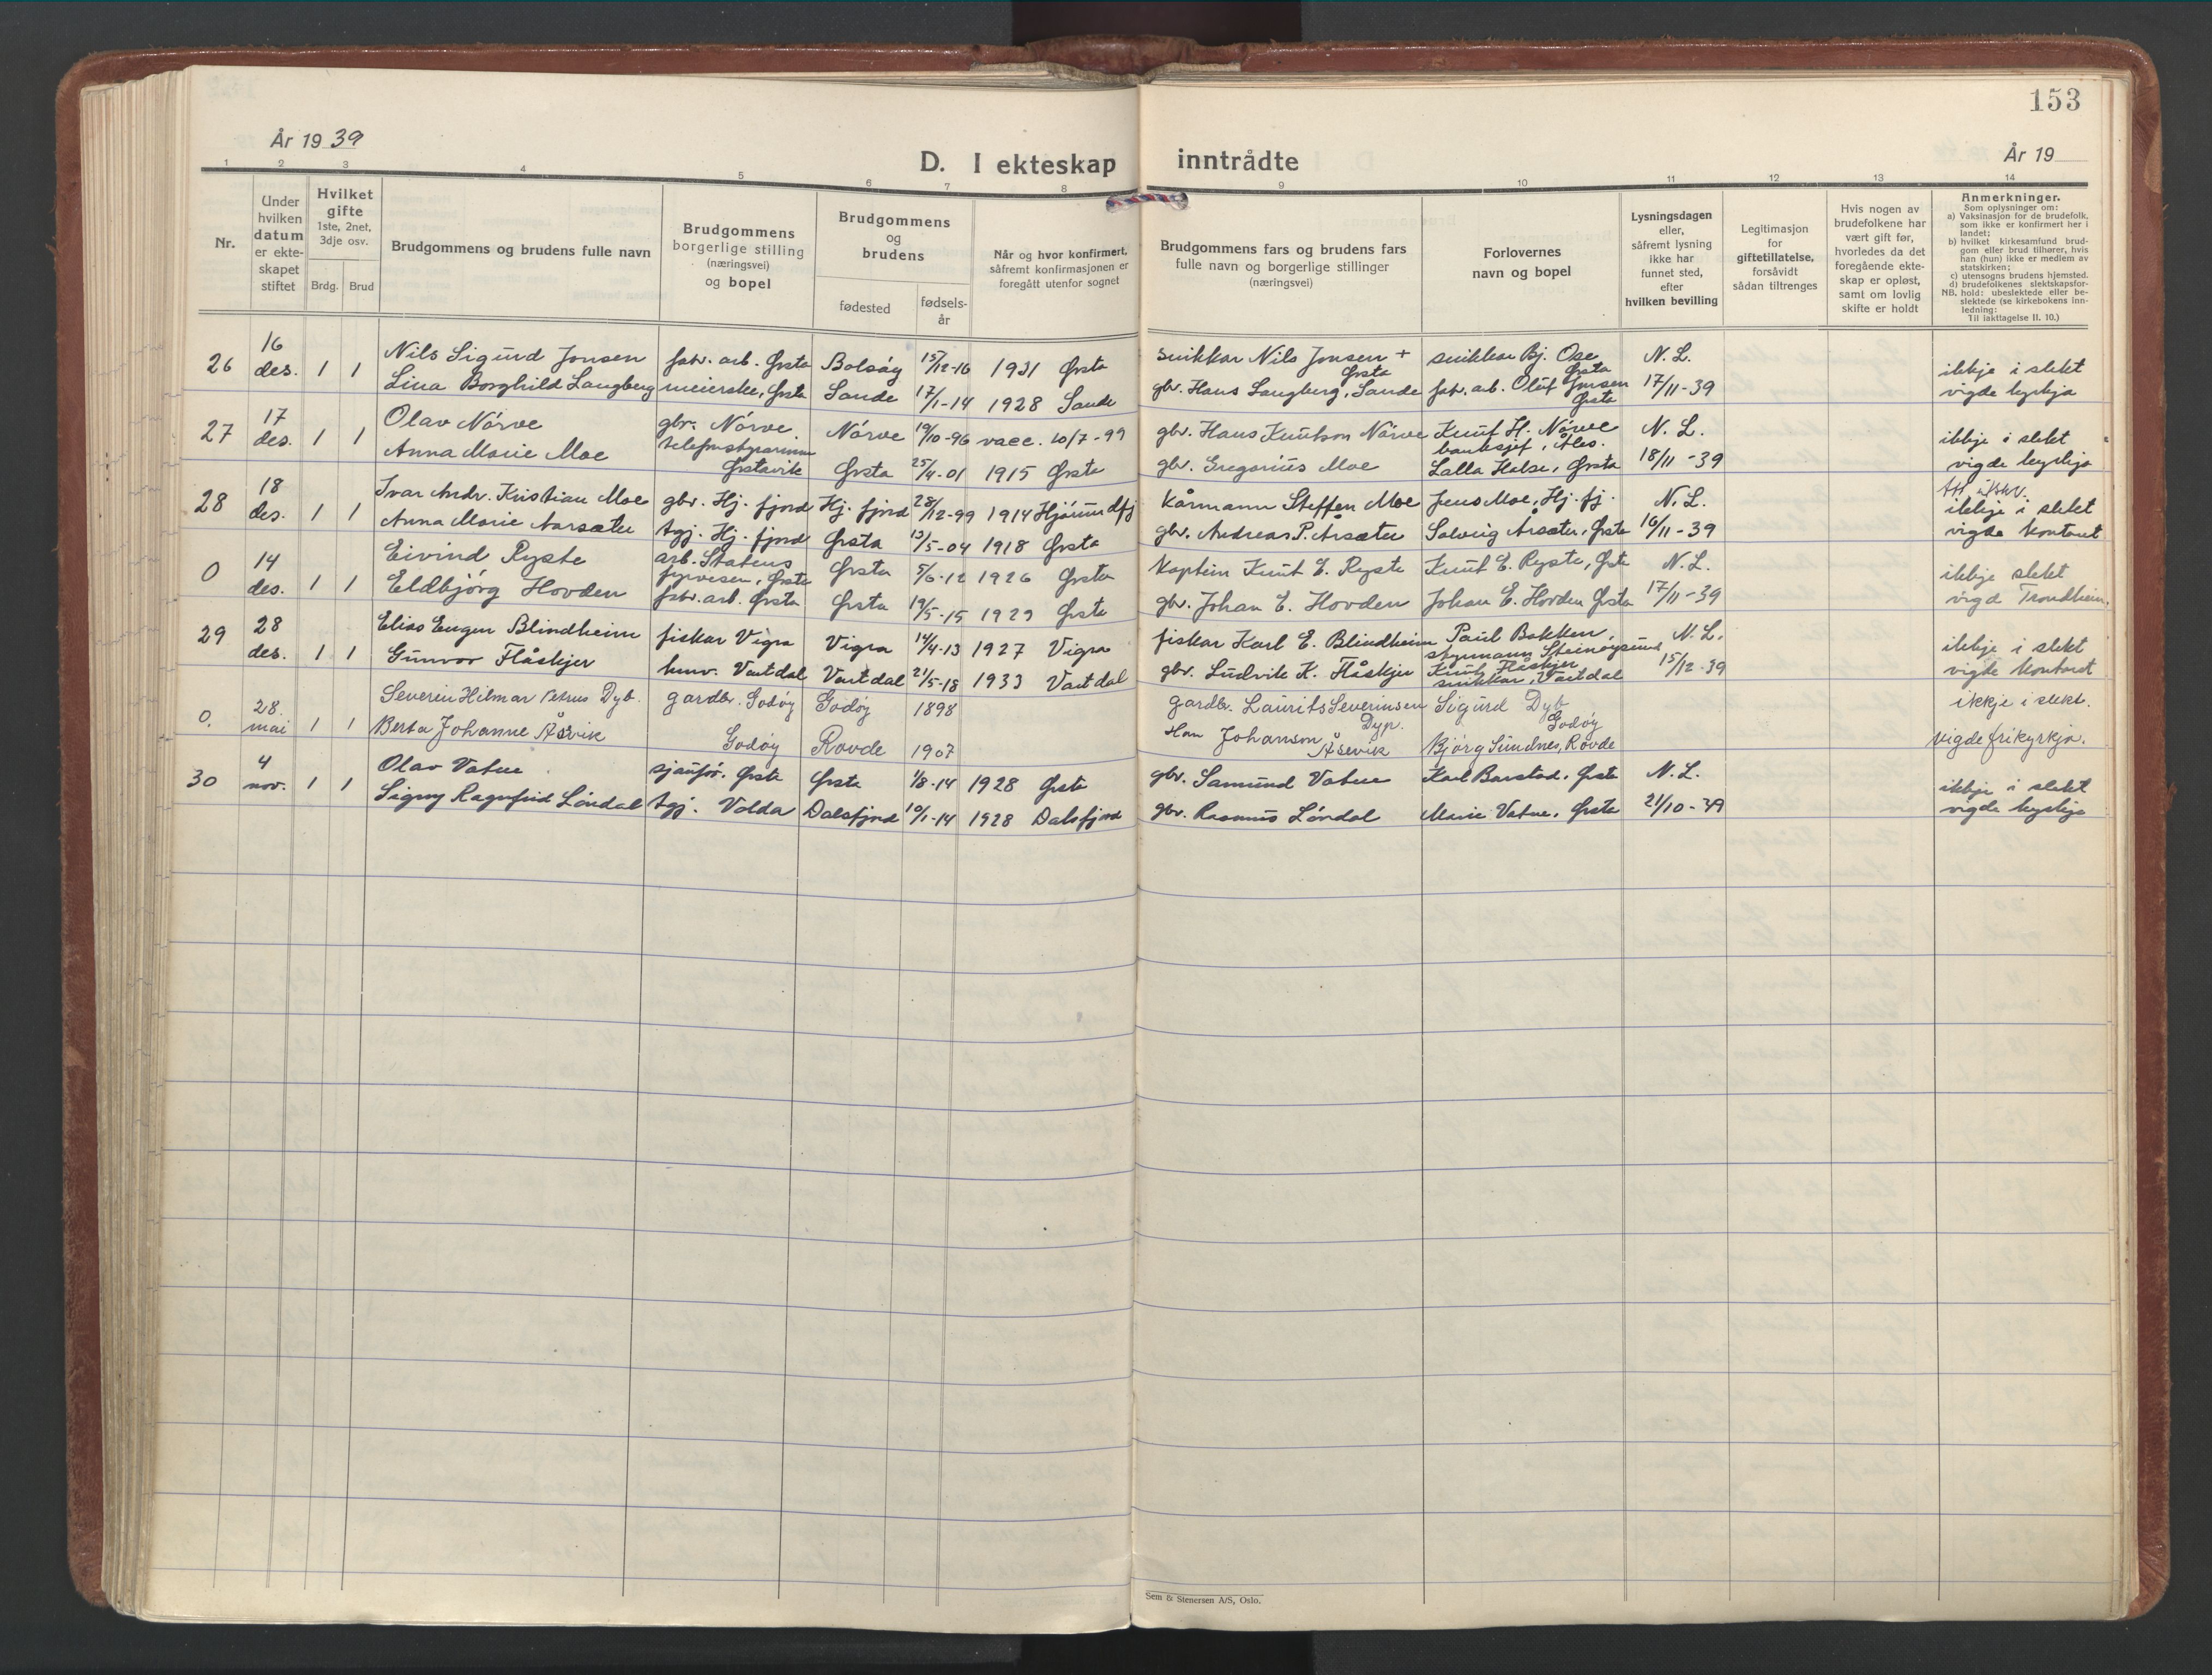 153
År 19 39
D. I ekteskap inntrådte
År 19
1 2 3 4 5 6 7 8 9 10 11 12 13 14
Nr.
Under
hvilken
datum
er ekte-
skapet
stiftet
Hvilket
gifte
1ste, 2net,
3dje osv.
Brdg. Brud
Brudgommens og brudens fulle navn
Brudgommens
borgerlige stilling
(næringsvei)
og bopel
Brudgommens
og
brudens
fødested
fødsels-
år
Når og hvor konfirmert,
såfremt konfirmasjonen er
foregått utenfor sognet
Brudgommens fars og brudens fars
fulle navn og borgerlige stillinger
(næringsvei)
Forlovernes
navn og bopel
Lysningsdagen
eller,
såfremt lysning
ikke har
funnet sted,
efter
hvilken bevilling
Legitimasjon
for
giftetillatelse,
forsåvidt
sådan tiltrenges
Hvis nogen av
brudefolkene har
vært gift før,
hvorledes da det
foregående ekte-
skap er opløst,
samt om lovlig
skifte er holdt
Anmerkninger.
Som oplysninger om:
a) Vaksinasjon for de brudefolk,
som ikke er konfirmert her i
landet;
b) hvilket kirkesamfund brud-
gom eller brud tilhører, hvis
han (hun) ikke er medlem av
statskirken;
c) utensogns brudens hjemsted.
d) brudefolkenes slektskapsfor-
NB. hold: ubeslektede eller be-
slektede (se kirkebokens inn-
ledning:
Til iakttagelse II. 10.)
26 16 des. 1 1 Nils Sigurd Jonsen fabr. arb. Ørsta Bolsøy 15/12-16 1931 Ørsta snikkar Nils Jonsen + Ørsta snikkar Bj. Ose Ørsta N. L. ikkje i slekt
Lina Borghild Langberg meierske, Ørsta Sande 17/1-14 1928 Sande gbr. Hans Langberg, Sande fabr. arb. Oluf Jonsen Ørsta 17/11-39 vigde kyrkja
27 17 des. 1 1 Olav Nørve gbr. Nørve Nørve 19/10-96 vacc. 10/7-99 gbr. Hans Knutson Nørve Knut H. Nørve banksjef, Åles. N. L. ikkje i slekt
Anna Marie Moe Ørstavik Ørsta 25/4-01 1915 Ørsta gbr. Gregorius Moe Lalla Halse, Ørsta 18/11-39 vigde kyrkja
28 18 des. 1 1 Ivar Andr. Kristian Moe gbr. Hj. fjord Hj. fjord 28/12-99 1914 Hjørundfj kårmann Steffen Moe Jens Moe, Hj. fj. N. L. ikkje i slekt
Anna Marie Aarsæter tgj. Hj. fjord Ørsta 13/5-04 1918 Ørsta gbr. Andreas P. Årsæter Solveig Årsæter, Ørsta 16/11-39 vigde kontort
0 14 des. 1 1 Eivind Ryste arb. Statens fyrvesen, Ørsta Ørsta 5/6-12 1926 Ørsta Kaptein Knut E. Ryste Knut E. Ryste, Ørsta N. L. ikkje slekt
Eldbjørg Hovden fabr. arb. Ørsta Ørsta 19/5-15 1929 Ørsta gbr. Johan E. Hovden Johan E. Hovden Ørsta 17/11-39 vigd Trondheim.
29 28 des. 1 1 Elias Eugen Blindheim fiskar Vigra Vigra 14/4-13 1927 Vigra fiskar Karl E. Blindheim Paul Bakken, styrmann Steinøysund N. L. ikkje i slekt
Gunvor Flåskjer husv. Vartdal Vartdal 21/5-18 1933 Vartdal gbr. Ludvik K. Flåskjer Knut Flåskjer snikkar, Vartdal 15/12-39 vigde kontoret
0. 28. mai 1 1 Severin Hilmar Petrus Dyb. gardbr. Godøy Godøy 1898 gardbr. Laurits Severinsen Dyp. Sigurd Dyb Godøy ikkje i slekt.
Berta Johanne Åsvik Godøy Rovde 1907 Johanson Åsevik Bjørg Sundnes, Rovde vigde frikyrkja.
30 4 nov. 1 1 Olav Vatne sjåfør. Ørsta Ørsta 1/8-14 1928 Ørsta gbr. Samund Vatne Karl Barstad, Ørsta N. L. ikkje i slekt
Signy Ragnfrid Løndal tgj. Volda Dalsfjord 10/1-14 1928 Dalsfjord gbr. Rasmus Løndal Marie Vatne, Ørsta 21/10-39 vigde kyrkja
Sem & Stenersen A/S, Oslo.